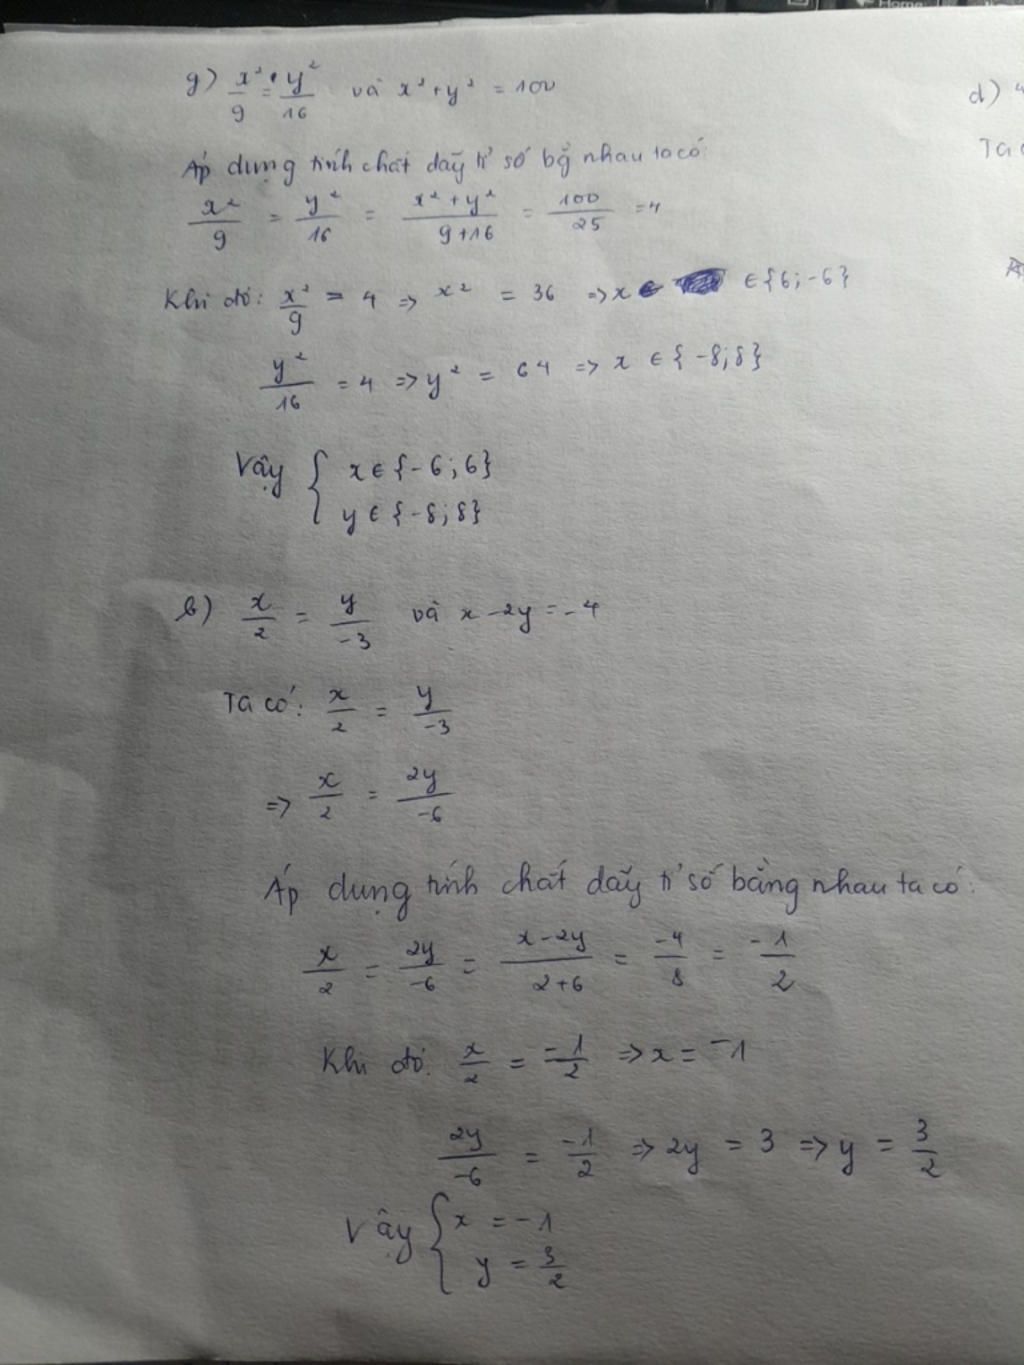 g) x²/9 = y²/16 và x²+y² = 100
d) 4
Áp dụng tính chất dãy tỉ số bằ nhau ta có:
Ta c
x²/9 = y²/16 = x²+y²/9+16 = 100/25 = 4
Khi đó: x²/9 = 4 => x² = 36 => x ∈ {6; -6}
y²/16 = 4 => y² = 64 => x ∈ {-8; 8}
Vậy { x ∈ {-6; 6}
y ∈ {-8; 8}
b) x/2 = y/-3 và x - 2y = -4
Ta có: x/2 = y/-3
=> x/2 = 2y/-6
Áp dụng tính chất dãy tỉ số bằng nhau ta có:
x/2 = 2y/-6 = x-2y/2+6 = -4/8 = -1/2
Khi đó: x/2 = -1/2 => x = -1
2y/-6 = -1/2 => 2y = 3 => y = 3/2
Vậy { x = -1
y = 3/2